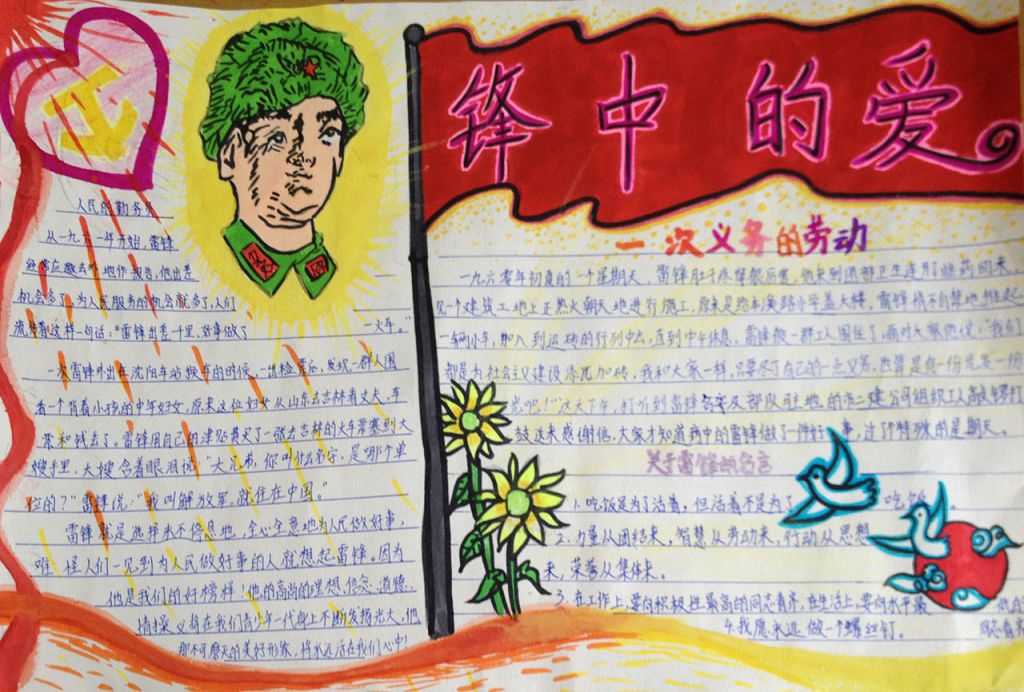 锋中的爱
人民的勤务员
从一九六一年开始，雷锋
经常应邀去外地作报告，他出差
机会多了，为人民服务的机会就多了，人们
流传着这样一句话："雷锋出差千里，好事做了
一火车。"
一次雷锋外出在沈阳车站换车的时候，一出检票口，发现一群人围
看一个背着小孩的中年妇女，原来这位妇女从山东去吉林看丈夫，车
票和钱丢了。雷锋用自己的津贴费买了一张去吉林的火车票塞到大
嫂手里，大嫂含着眼泪说："大兄弟，你叫什么名字，是哪个单
位的？"雷锋说："我叫解放军，就住在中国。"
雷锋就是这样永不停息地，全心全意地为人民做好事，
难怪人们一见到为人民做好事的人就想起雷锋。因为
他是我们的好榜样！他的高尚的理想、信念、道德、
情操义将在我们青少年一代身上不断发扬光大，他
那不可磨灭的美好形象，将永远活在我们心中！
一次义务的劳动
一九六零年初夏的一个星期天，雷锋肚子疼得很厉害，他来到团部卫生连开了些药回来，
见一个建筑工地上正热火朝天地进行施工，原来是给本溪路小学盖大楼，雷锋情不自禁地推起
一辆小车，加入到运砖的行列中去，直到中午休息，雷锋被一群工人围住了，面对大家他说："我们
都是为社会主义建设添瓦加砖，我和大家一样，只要尽了自己的一点义务，也算是有一份光发一份
光吧！"这天下午，打听到雷锋名字及部队驻地的市二建公司组织工人敲锣打
鼓送来感谢信，大家才知道病中的雷锋做了一件好事，过了个特殊的星期天。
关于雷锋的名言
1.吃饭是为了活着，但活着不是为了吃饭。
2.力量从团结来，智慧从劳动来，行动从思想
来，荣誉从集体来。
3.在工作上，要向积极性最高的同志看齐，在生活上，要向水平最
4.我愿永远做一个螺丝钉。